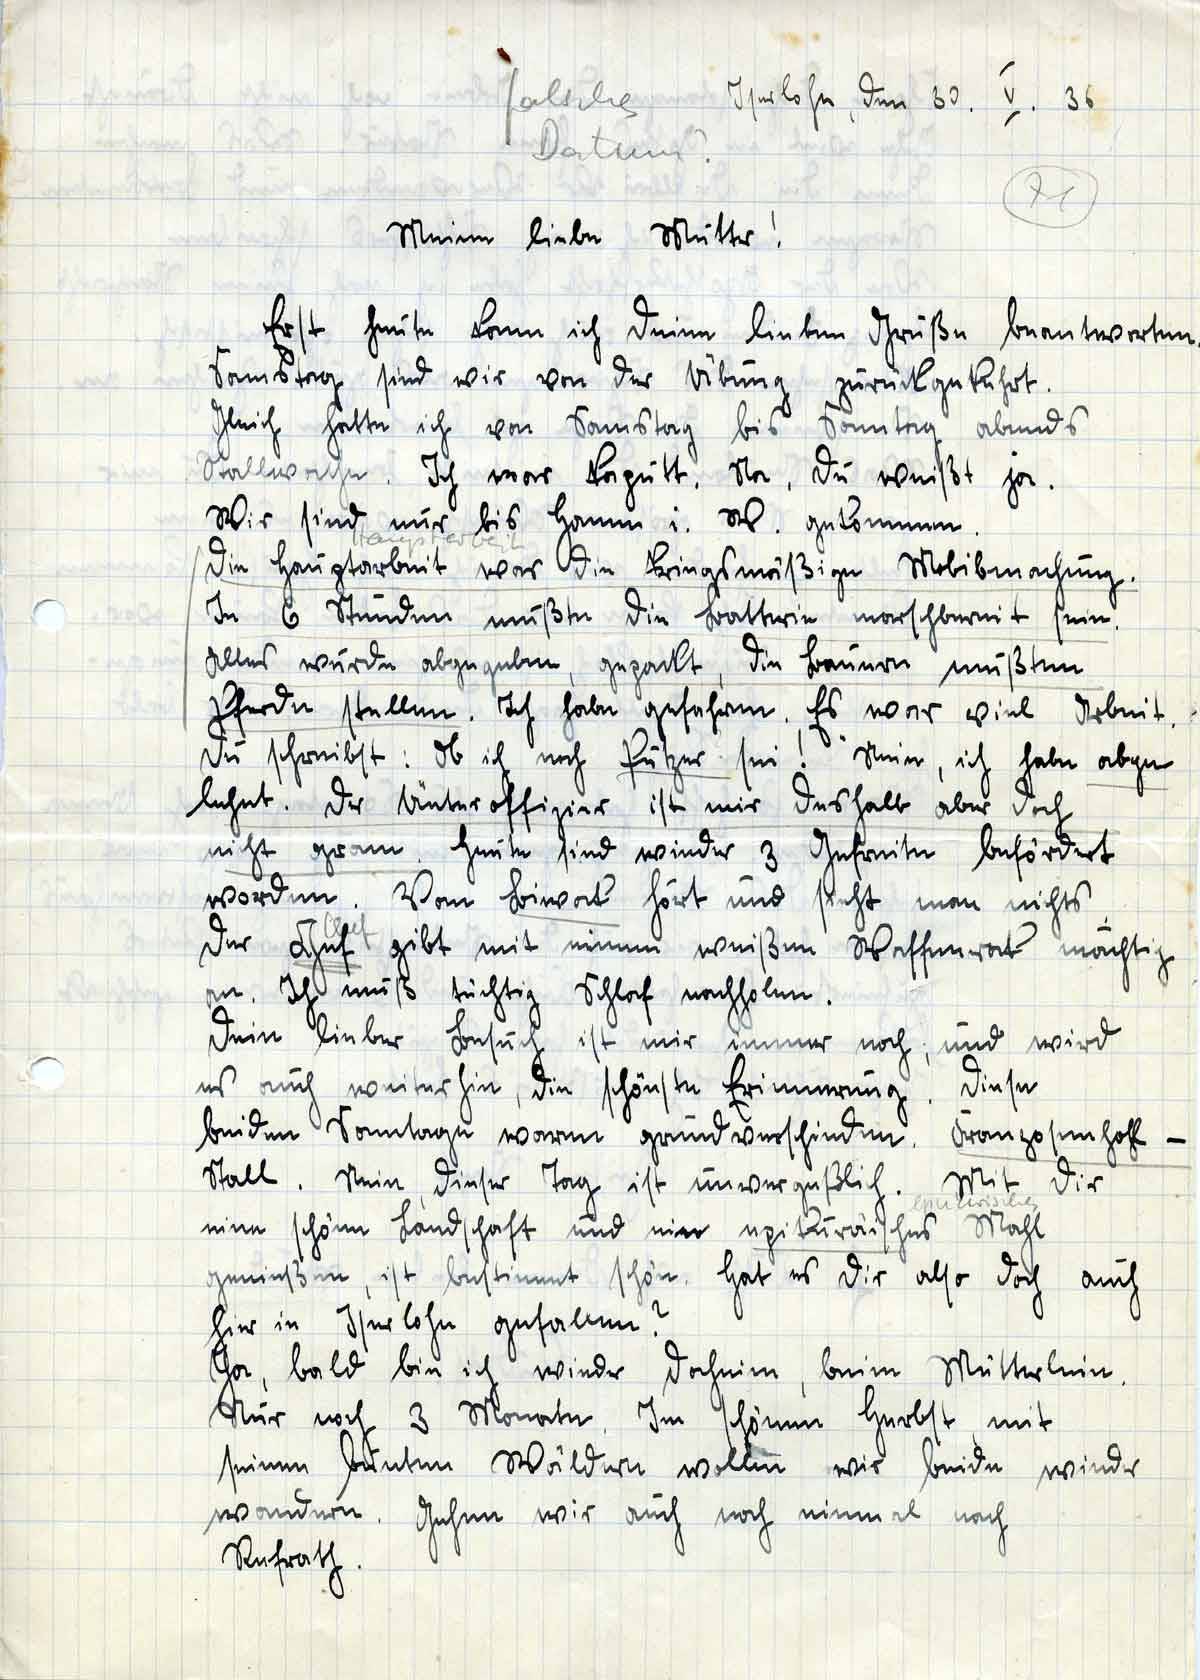 falsches Iserlohn, den 30. V. 36
Datum?
71
Meine liebe Mutter!
Erst heute kann ich Deine lieben Grüße beantworten.
Samstag sind wir von der Übung zurückgekehrt.
Gleich hatte ich von Samstag bis Sonntag abends
Stallwache. Ich war kaputt. Na, Du weißt ja.
Wir sind nur bis Hamm i. W. gekommen.
Hauptarbeit
Die Hauptarbeit war die kriegsmäßige Mobilmachung.
In 6 Stunden mußte die Batterie marschbereit sein.
Alles wurde abgegeben, gepackt, die Bauern mußten
Pferde stellen. Ich habe gefahren. Es war viel Arbeit.
Du schreibst: Ob ich noch Putzer sei! Nein, ich habe abge
lehnt. Der Unteroffizier ist mir deshalb aber doch
nicht gram. Heute sind wieder 3 Gefreite befördert
worden. Vom Biwak hört und sieht man nichts.
Chef
Der Chef gibt mit einem weißen Waffenrock mächtig
an. Ich muß tüchtig Schlaf nachholen.
Dein lieber Besuch ist mir immer noch, und wird
es auch weiterhin, die schönste Erinnerung. Diese
beiden Sonntage waren grundverschieden. Franzosenhoff –
Stall. Nein, dieser Tag ist unvergeßlich. Mit Dir
epikurisches
eine schöne Landschaft und ein epikuräisches Mahl
genießen, ist bestimmt schön. Hat es Dir also doch auch
hier in Iserlohn gefallen?
Ja, bald bin ich wieder daheim, beim Mütterlein.
Nur noch 3 Monate. Im schönen Herbst mit
seinen bunten Wäldern wollen wir beide wieder
wandern. Gehen wir auch noch einmal nach
Refrath.